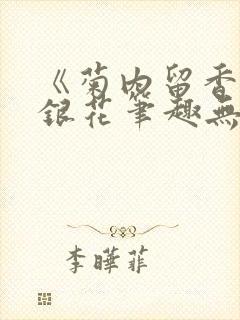 《菊内留香
銀花筆趣無
李曄菲